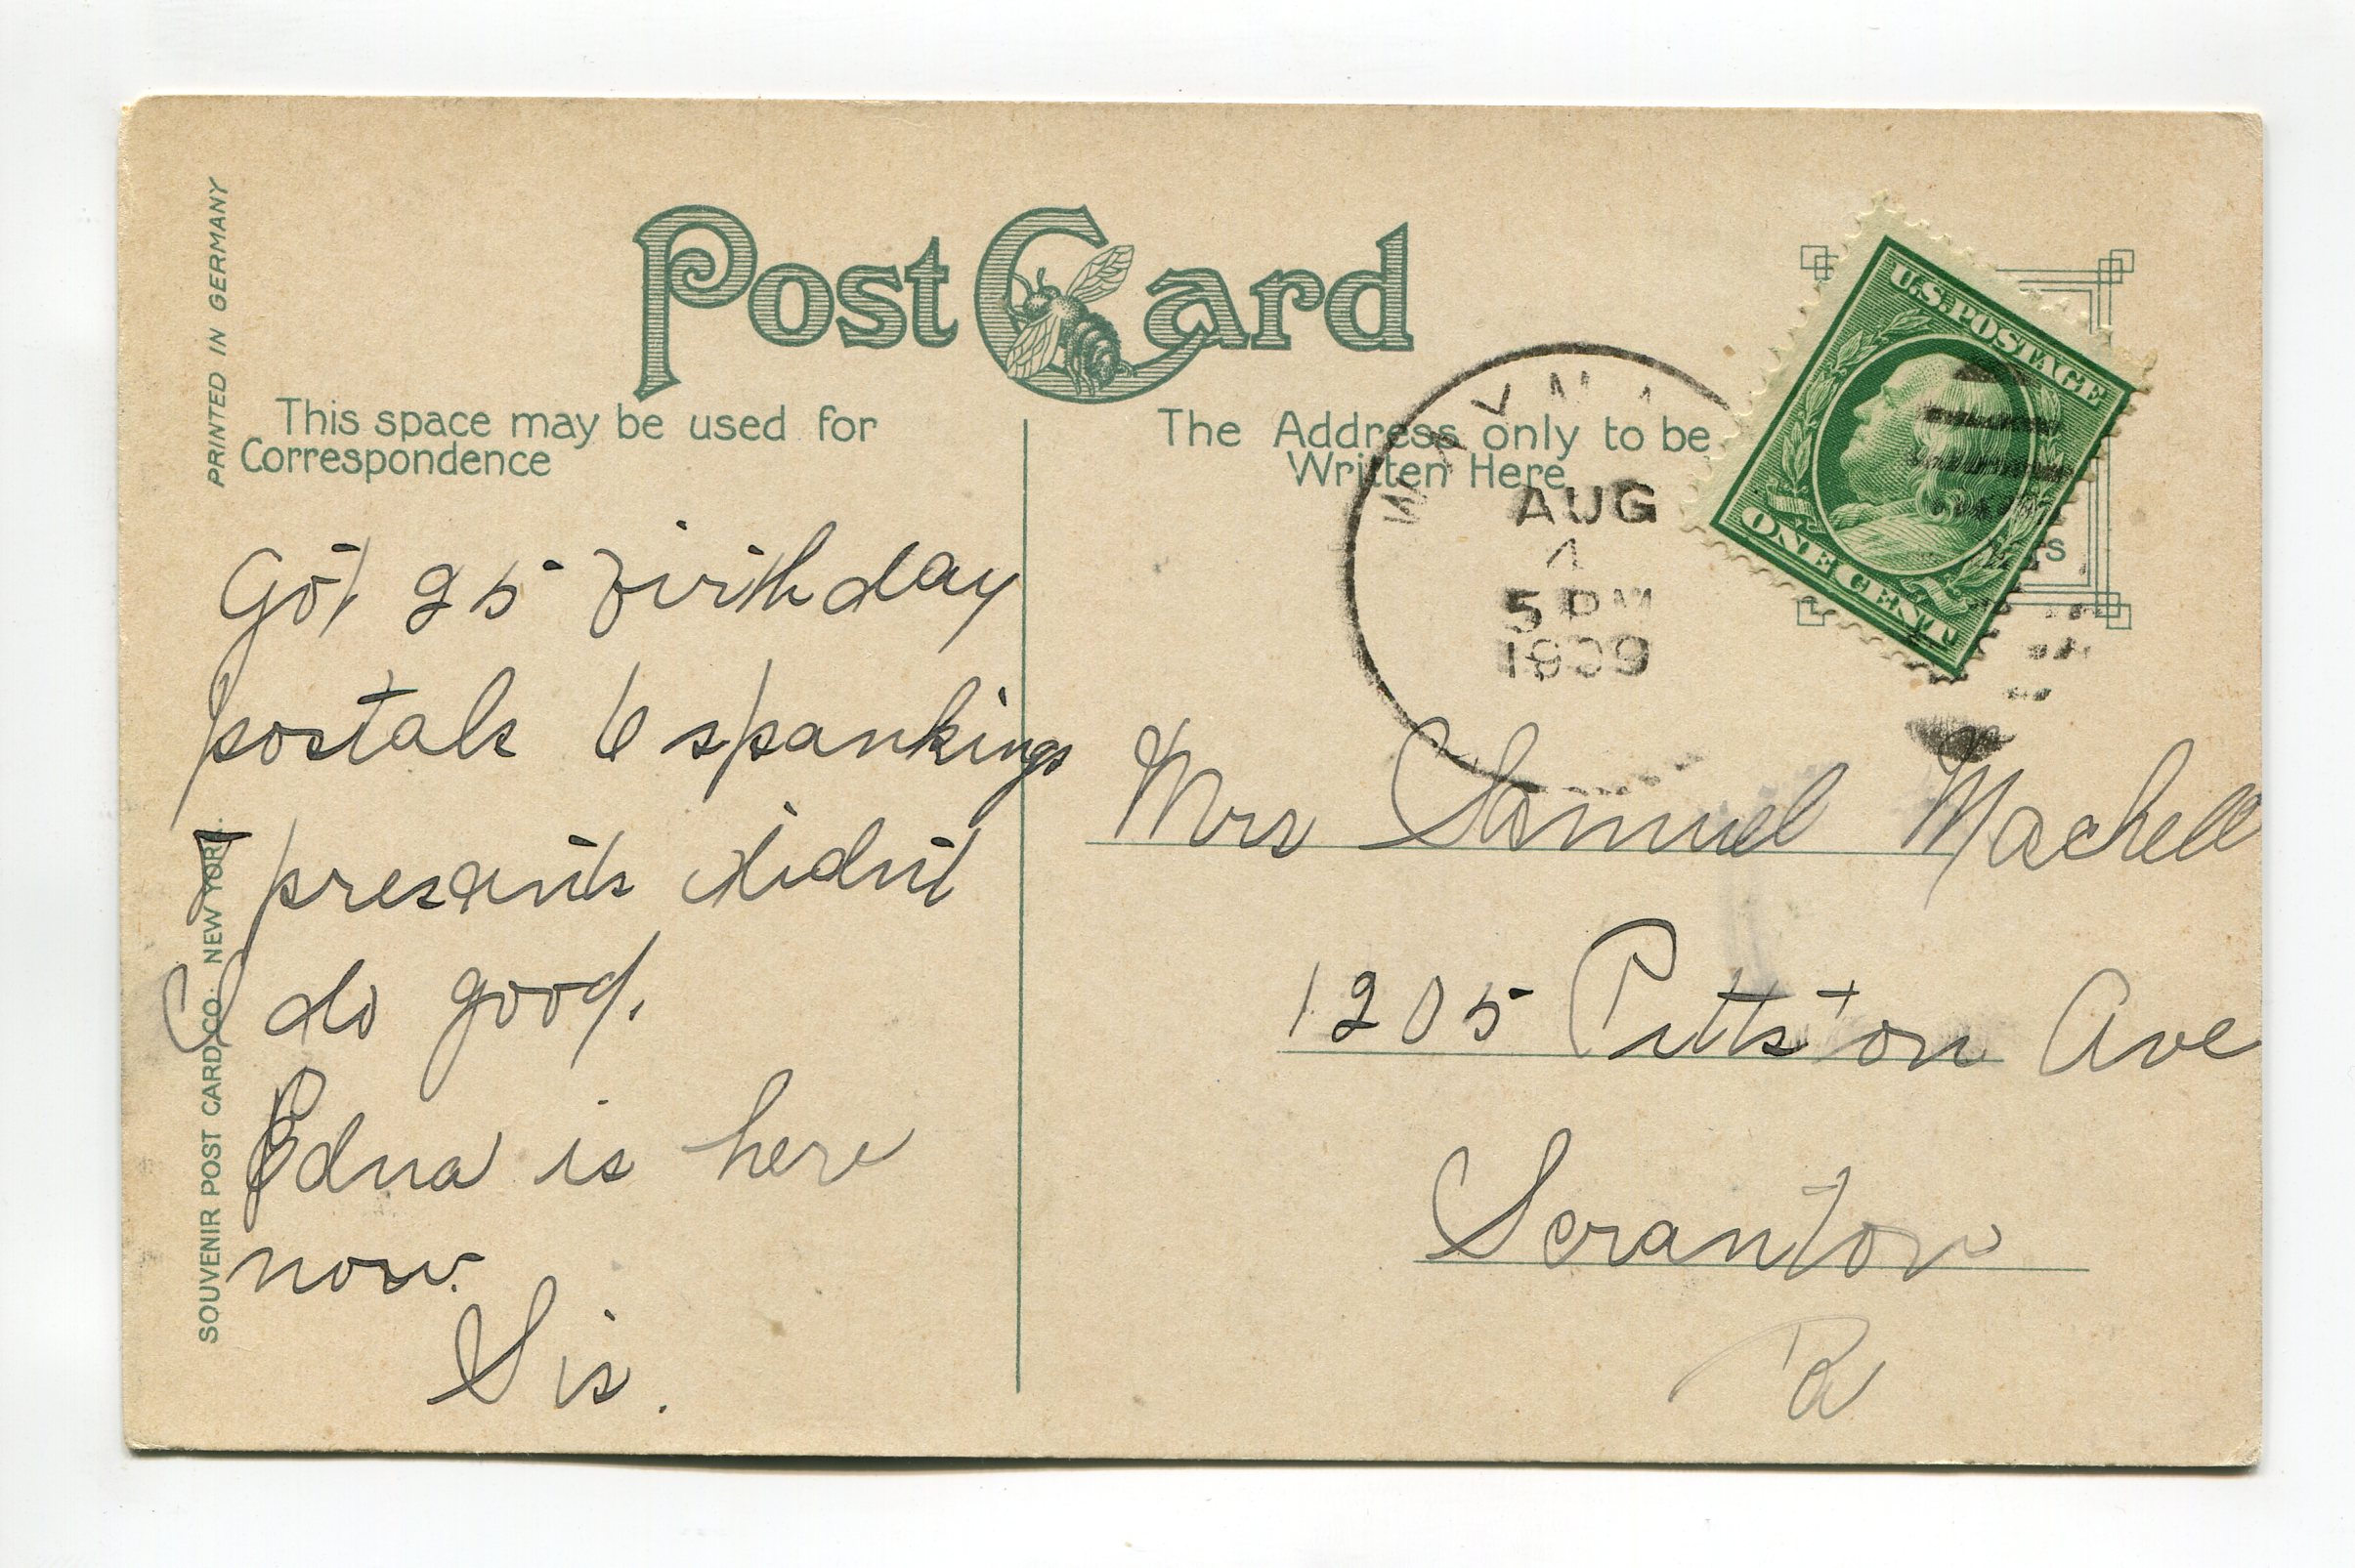 PRINTED IN GERMANY
SOUVENIR POST CARD CO. NEW YORK.
Post Card
This space may be used for
Correspondence
Got 25 birthday
postals 6 spankings
7 presants didn't
I do good.
Edna is here
now.
Sis.
The Address only to be
Written Here
AUG
5 PM
1909
U.S. POSTAGE
ONE CENT
Mrs Samuel Machell
1205 Pittston Ave
Scranton
Pa